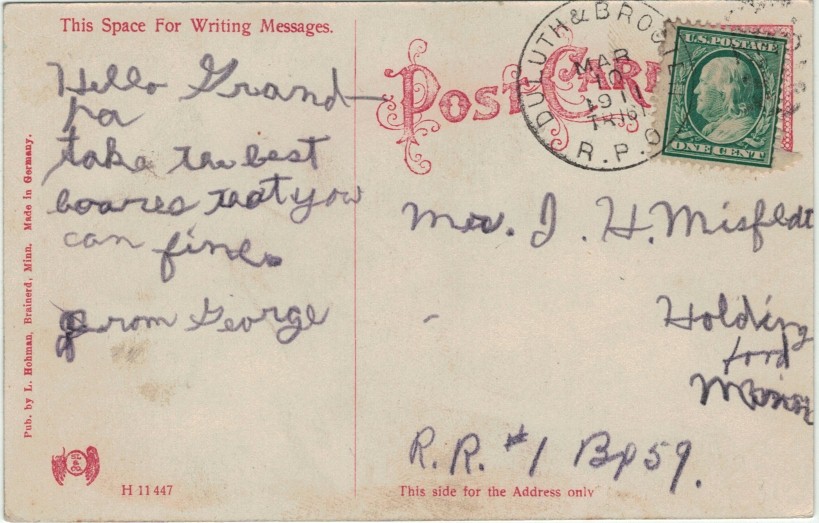 This Space For Writing Messages.
Hello Grand-
pa
take the best
boares that you
can fine.
From George
Pub. by L. Hohman, Brainerd, Minn. Made in Germany.
H 11447
POST CARD
DULUTH & BRO
MAR
10
1911
R.P.O.
U.S. POSTAGE
ONE CENT
Mr. J. H. Misfeldt
Holding
ford
Minn
R.R. #1 Bp59.
This side for the Address only